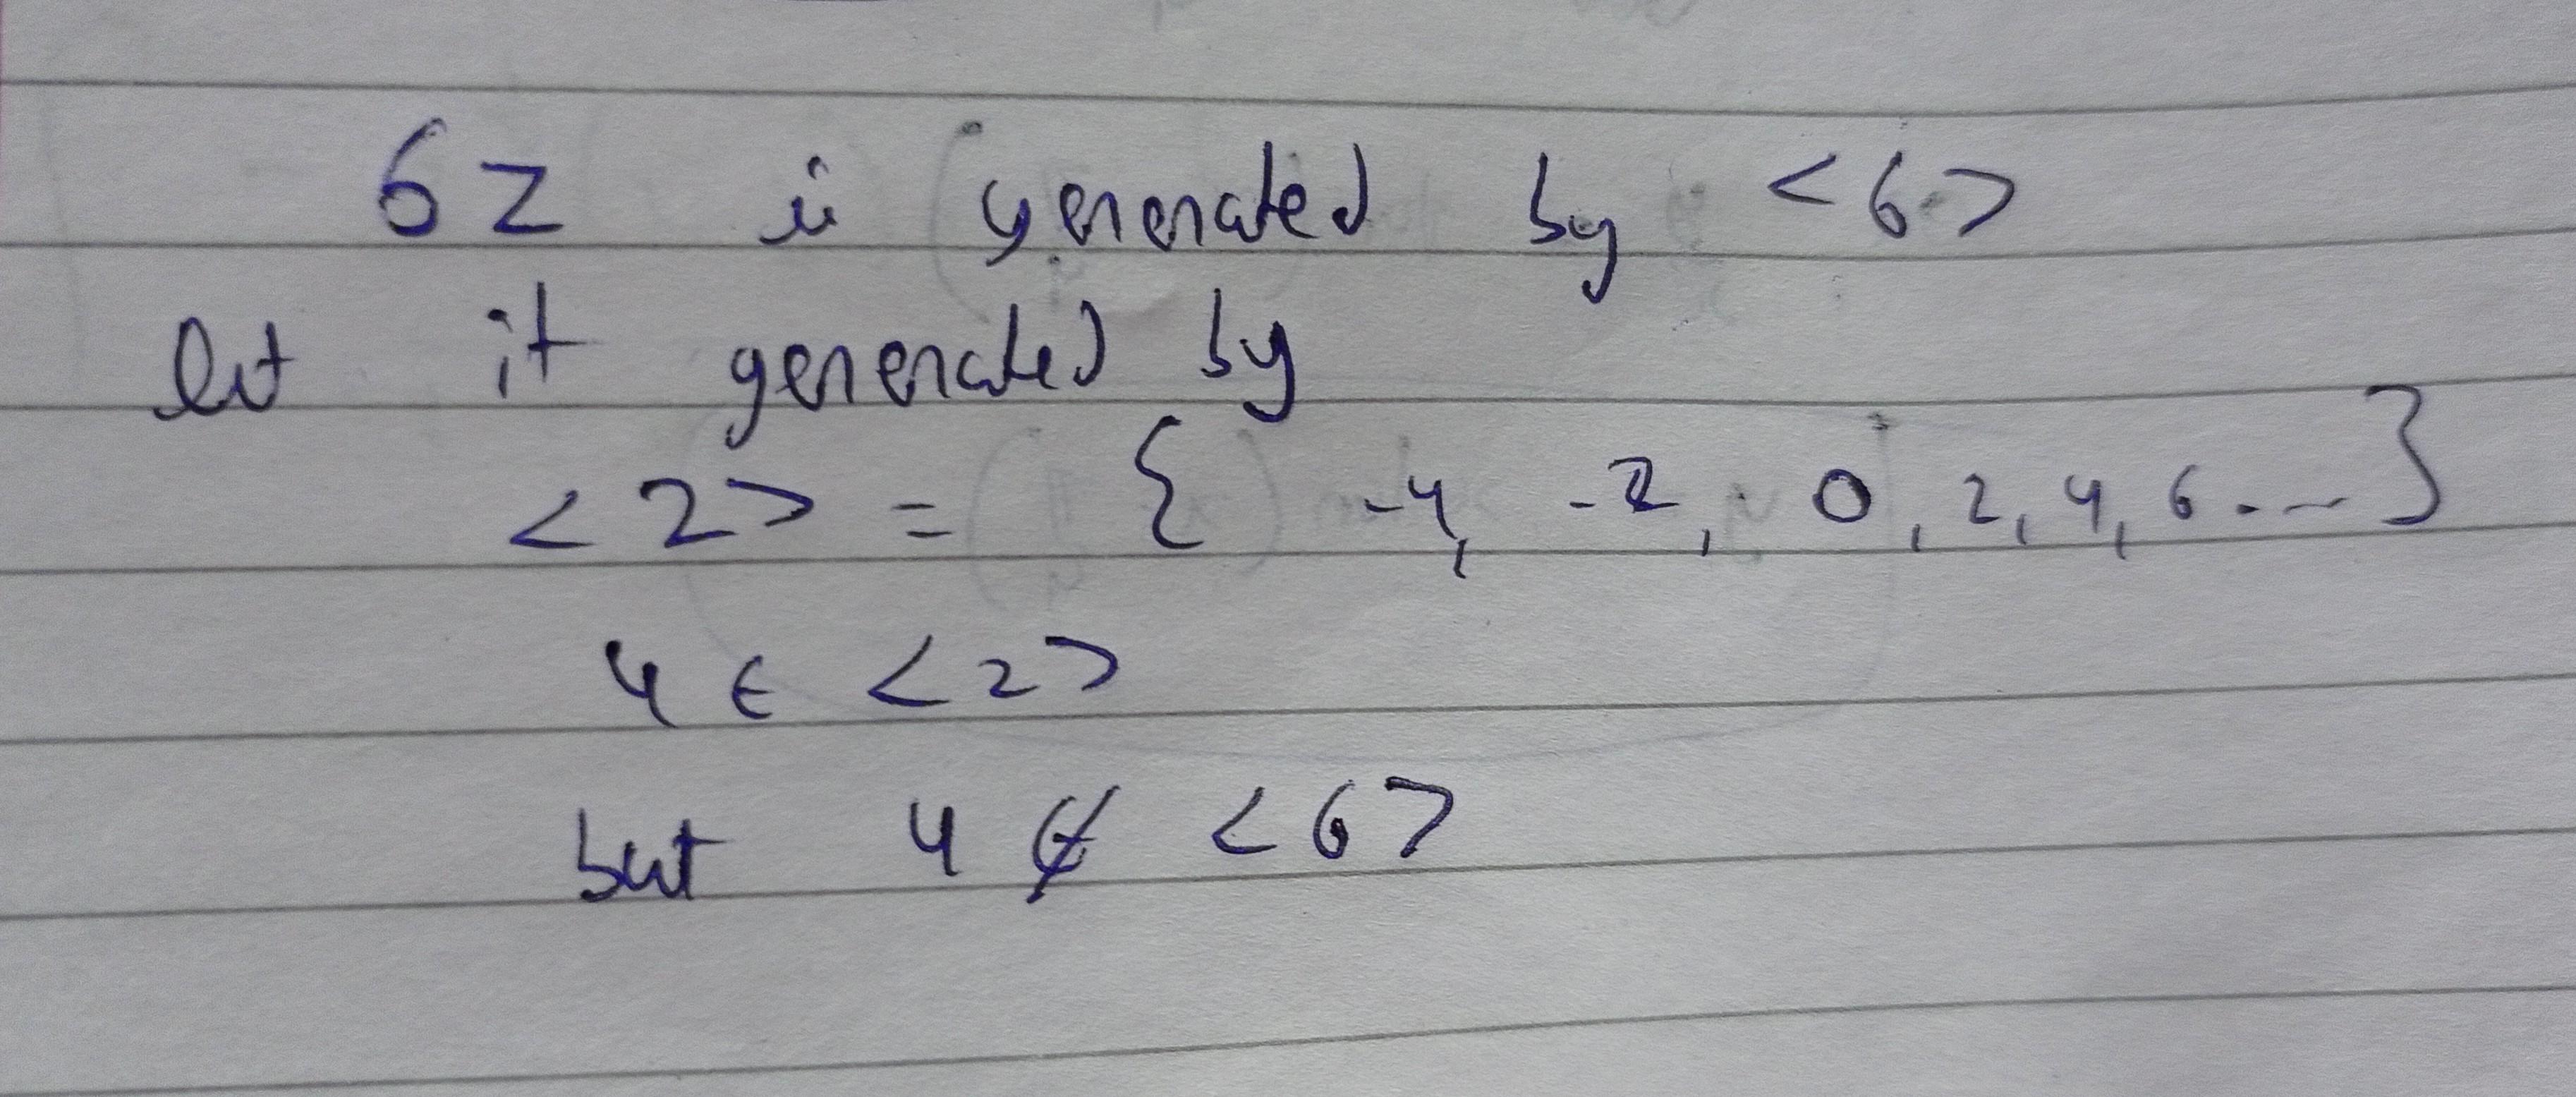 6Z is generated by <6>
let it generated by
<2> = { -4, -2, 0, 2, 4, 6 ... }
4 ∈ <2>
but 4 ∉ <6>